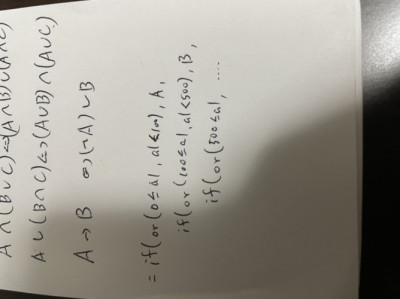 A ∩ (B ∪ C) ⇔ (A ∩ B) ∪ (A ∩ C)
A ∪ (B ∩ C) ⇔ (A ∪ B) ∩ (A ∪ C)
A → B ⇔ (¬A) ∪ B
= if(or(0≤a1, a1≤100), A,
if(or(100≤a1, a1<500), B,
if(or(500≤a1, ....